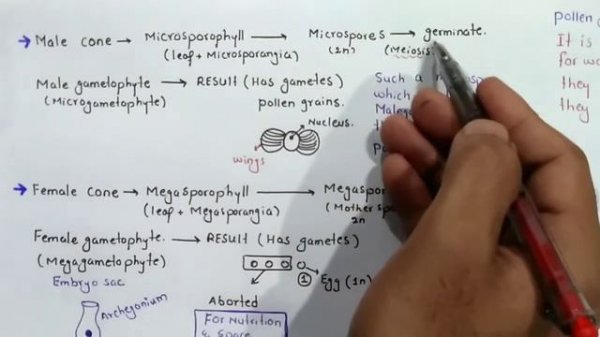 → Male cone → Microsporophyll → Microspores → germinate.
(leaf + Microsporangia) (2n) (Meiosis
Male gametophyte → RESULT (Has gametes)
(Microgametophyte) pollen grains.
Nucleus.
wings
Such a
which
pollen
It is
for
they
they
→ Female cone → Megasporophyll → Megaspo
(leaf + Megasporangia) (Mother
2n
Female gametophyte. → RESULT (Has gametes)
(Megagametophyte)
Embryo sac
Archegonium
① Egg (1n)
Aborted
For Nutrition
& Space